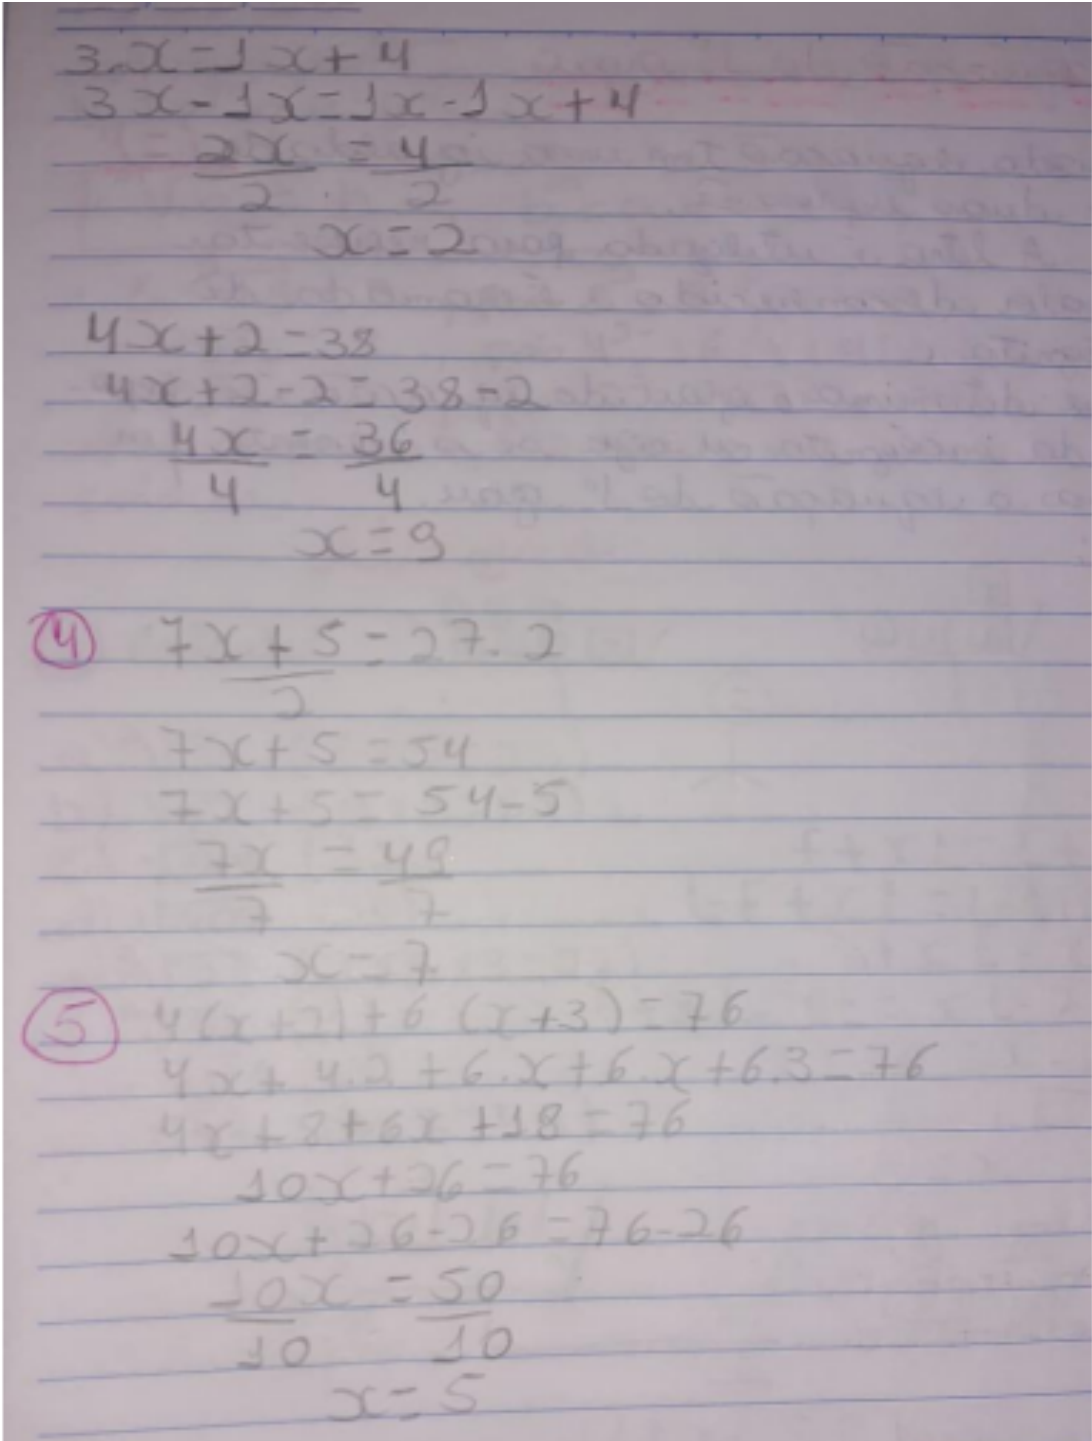 3.x=1x+4
3x-1x=1x-1x+4
2x = 4
2 2
x=2
4x+2=38
4x+2-2=38-2
4x = 36
4 4
x=9
4 7x+5=27.2
2
7x+5=54
7x+5=54-5
7x = 49
7 7
x=7
5 4(x+2)+6(x+3)=76
4x+4.2+6.x+6.x+6.3=76
4x+8+6x+18=76
10x+26=76
10x+26-26=76-26
10x = 50
10 10
x=5